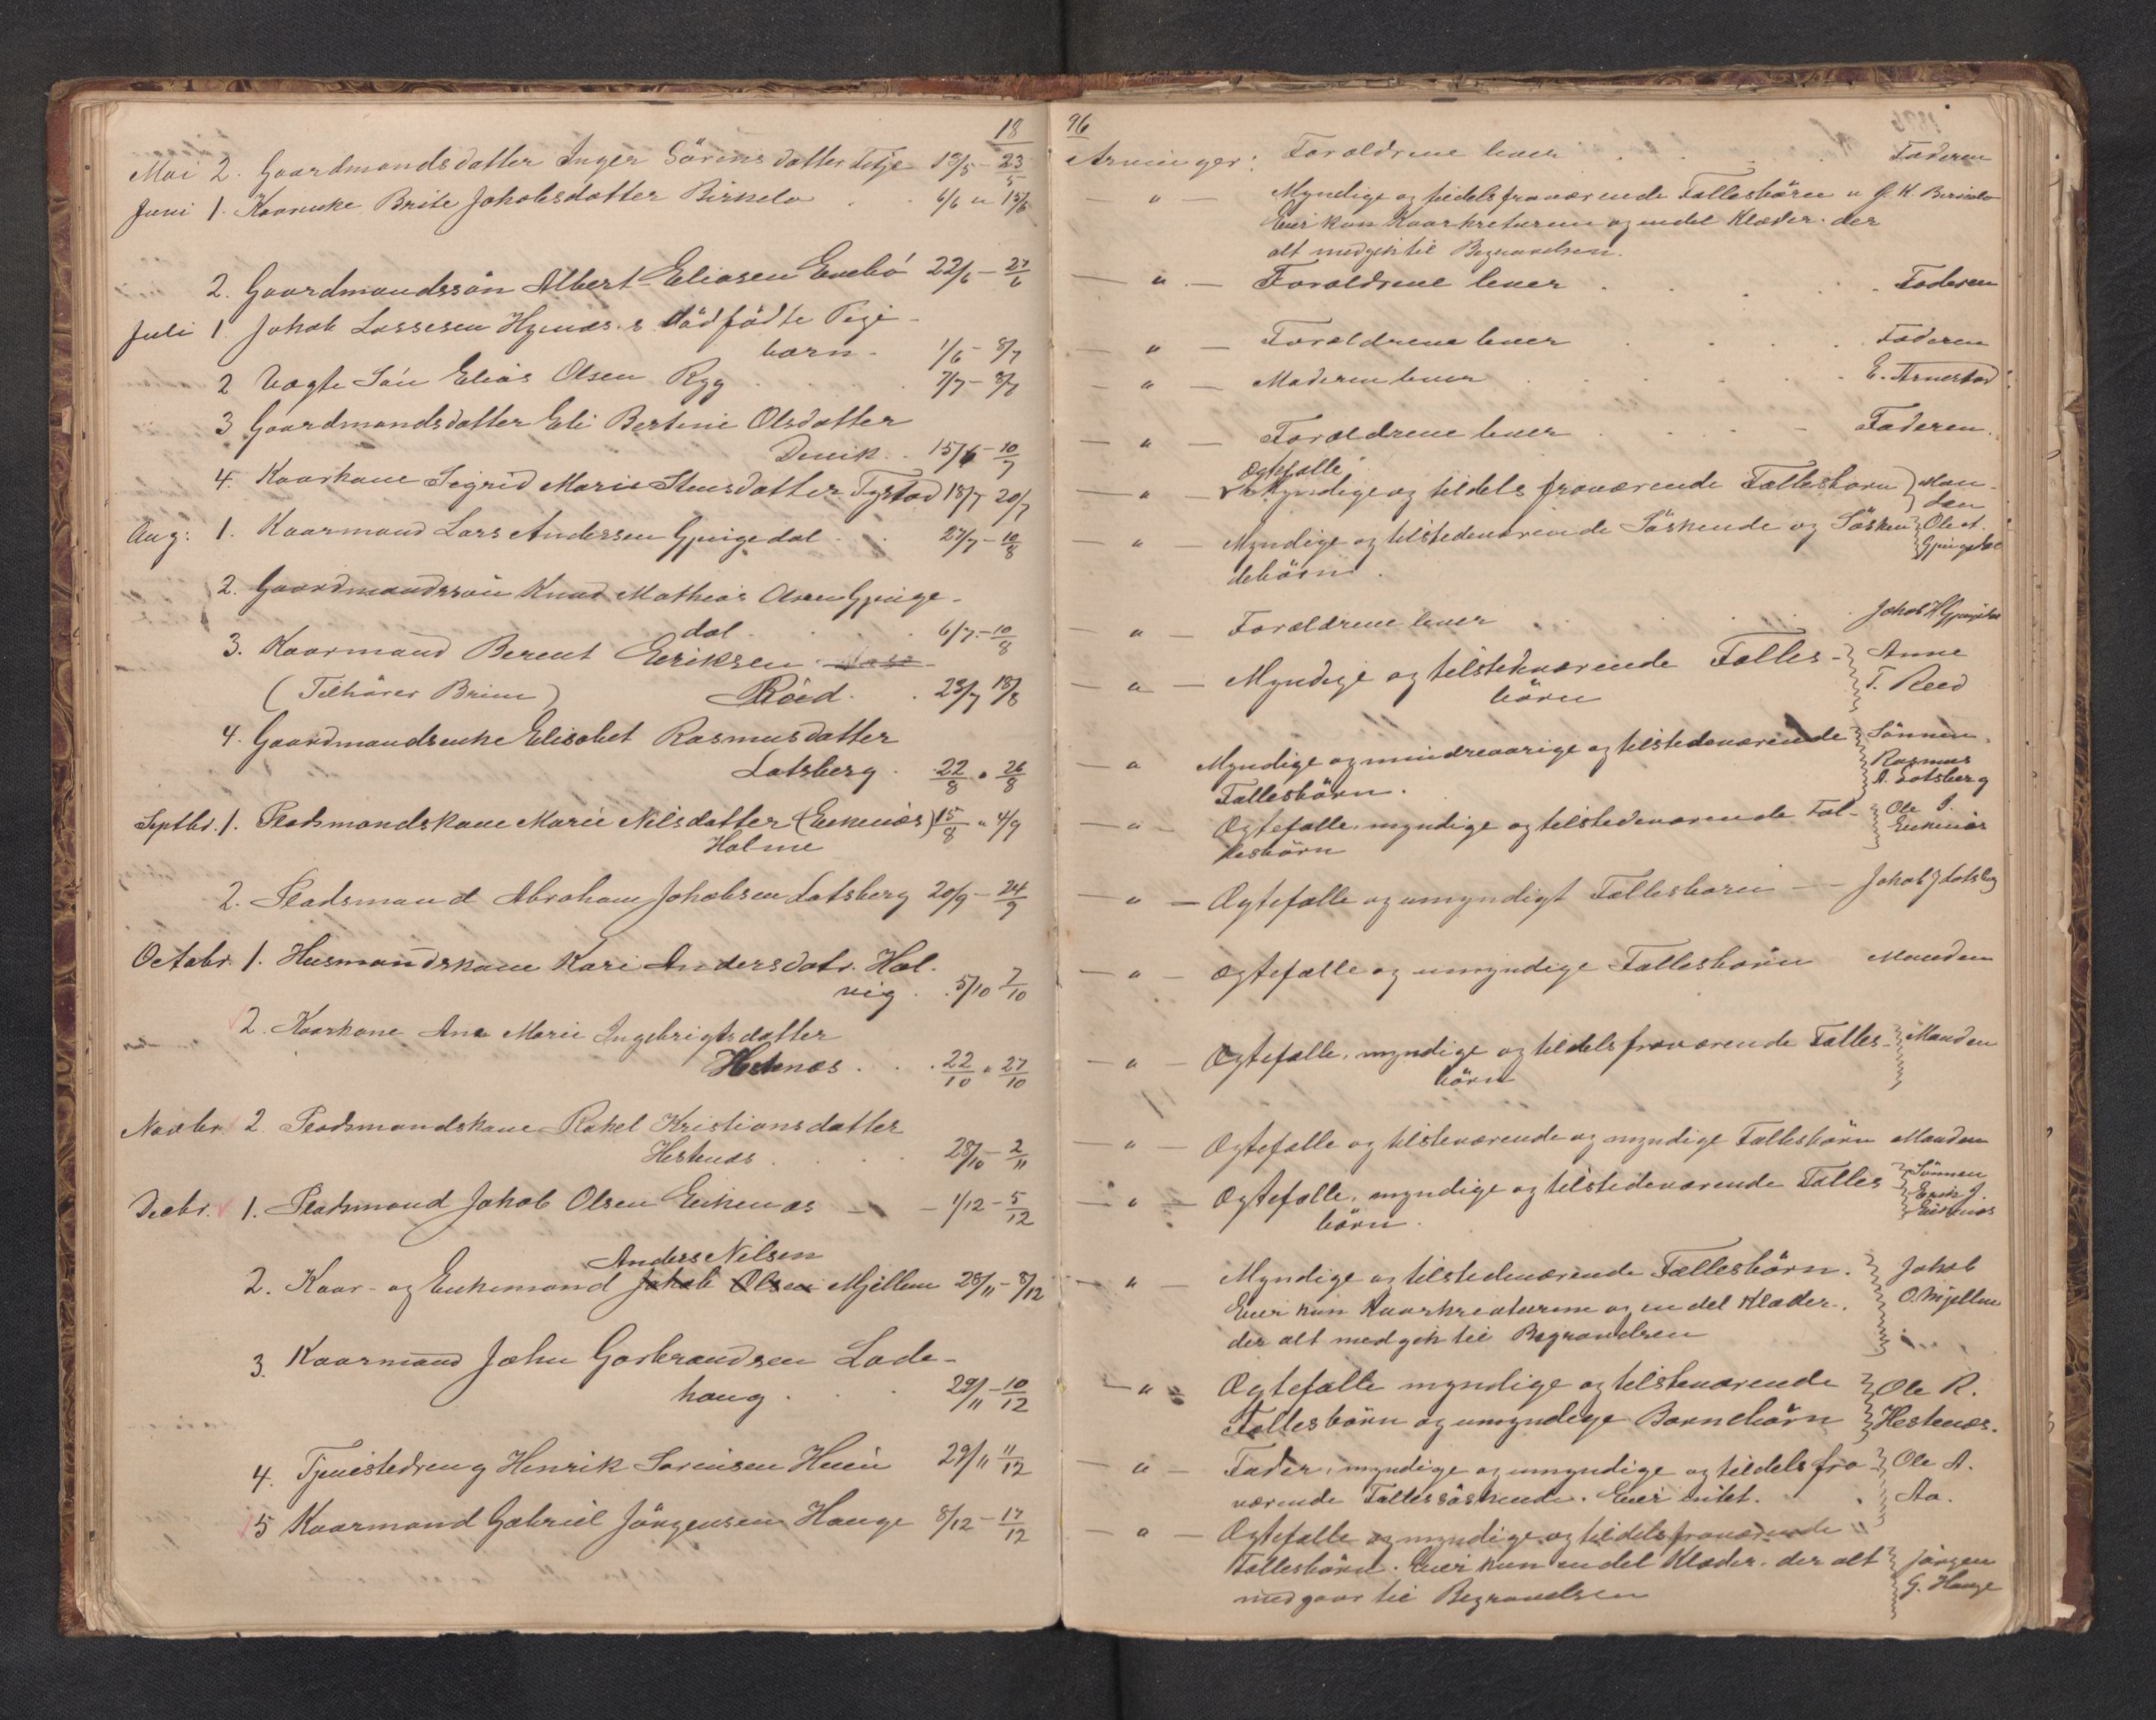 18
Mai 2. Gaardmandsdatter Inger Sörensdatter 13/5 - 23/5
Juni 1. Kaarenke Brite Jakobsdatter Birkelo . . 6/6 " 13/6
2. Gaardmandssön Albert Eliasen Evebö 22/6 - 27/6
Juli 1. Jakob Lassesen Hjenæs.s dödfödte Pige-
barn - 1/6 - 8/7
2 Lægte Sön Elias Olsen Rygg . . . 7/7 - 8/7
3 Gaardmandsdatter Eli Bertine Olsdatter
Devik . . 15/6 - 10/7
4. Kaarkone Sigrid Marie Stensdatter Tystad 18/7 20/7
Aug: 1. Kaarmand Lars Andersen Gjengedal . . 27/7 - 10/8
2. Gaardmandssön Knud Mathias Gjenge-
dal . . . 6/7 - 10/8
3. Kaarmand Berent Eeriksen
(Tilhörer Brim) Röed . . 23/7 18/8
4. Gaardmandsenke Elisabet Rasmusdatter
Lotsberg . 22/8 " 26/8
Septbr. 1. Pladsmandskone Marie Nilsdatter (Eikenæs) 15/8 " 4/9
Holme
2. Pladsmand Abraham Jakobsen Lotsberg 20/9 - 24/9
Octobr. 1. Husmandskone Kari Andersdatr. Hol-
vig . . 5/10 7/10
2. Kaarkone Ane Marie Ingebrigtsdatter
Hestenæs . . . 22/10 " 27/10
Novbr. 2. Pladsmandskone Rakel Kristiansdatter
Hestenæs . . . . 28/10 - 2/11
Decbr. 1. Pladsmand Jakob Olsen Eikenæs - - 1/12 - 5/12
Anders Nilsen
2. Kaar- og Enkemand Jakob Olsen Mjellem 28/11 - 8/12
3. Kaarmand John Garbrandsen Lade-
haug . . . 29/11 - 10/12
4. Tjenestedreng Henrik Sörensen 29/11 11/12
5 Kaarmand Gabriel Jörgensen Hauge 8/12 - 17/12
96
Arvinger: Forældrene lever . . . . Faderen
— " — Myndige og tildels fraværende Fællesbörn
Eier kun Kaarkreturene og endel Klæder. der
alt medgik til Begravelsen.
— " — Forældrene lever . . . . Faderen
— " — Forældrene lever . . . . Faderen
— " — Moderen lever . . . . E. Arnestad
— " — Forældrene lever . . . - Faderen.
Ægtefælle
— " — Myndige og tildels fraværende Fællesbörn } Man-
den
— " — Myndige og tilstedeværende Söskende og Sösken- } Ole A.
debörn. Gjengedal
— " — Forældrene lever . . . .
— " — Myndige og tilstedeværende Fælles- } Anne
börn T. Reed
— " Myndige og mindreaarige og tilstedeværende } Sönnen
Fællesbörn. Rasmus
A. Lotsberg
— " — Ægtefælle, myndige og tilstedeværende Fæl- } Ole J.
lesbörn Eikenæs
— " — Ægtefælle og umyndigt Fællesbarn — Jakob J Lotsberg
— " — Ægtefælle og umyndige Fællesbörn Manden
— " — Ægtefælle, myndige og tildels fraværende Fælles- } Manden
börn
— " — Ægtefælle og tilsteværende og myndige Fællesbörn Manden
— " — Ægtefælle, myndige og tilstedeværende Fælles } Sönnen
börn. Erik J.
Eikenæs
— " — Myndige og tilstedeværende Fællesbörn. } Jakob
Eier kun Kaarkreaturene og en del Klæder., O. Mjellem
der alt medgik til Begravelsen
— " — Ægtefælle myndige og tilsteværende } Ole R.
Fællesbörn og umyndige Barnebörn Hestenæs.
— " — Fader, myndige og umyndige og tildels fra- } Ole A.
værende Fællessöskende. Eier intet. . Aa.
— " — Ægtefælle og myndige og tildels fraværende
Fællesbörn. Eier kun endel Klæder. der alt } Jörgen
medgaar til Begravelsen G. Hauge